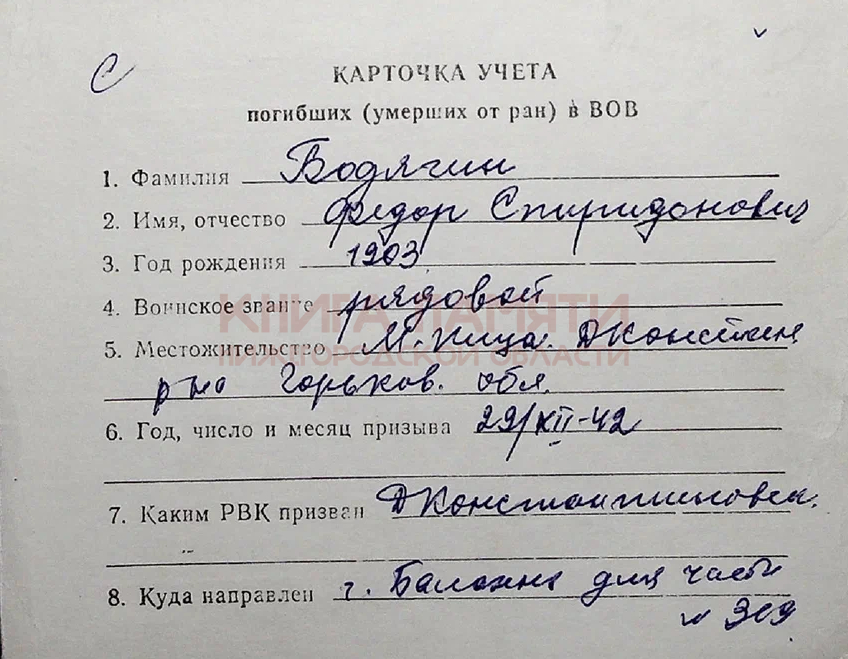 С
КАРТОЧКА УЧЕТА
погибших (умерших от ран) в ВОВ
1. Фамилия Водягин
2. Имя, отчество Федор Спиридонович
3. Год рождения 1903
4. Воинское звание рядовой
КНИГА ПАМЯТИ
НИЖЕГОРОДСКОЙ ОБЛАСТИ
5. Местожительство М. Пица. ДКонстин
р-на Горьков. обл.
6. Год, число и месяц призыва 29/XII-42
7. Каким РВК призван ДКонстантиновск.
8. Куда направлен г. Балахна для части
№ 309